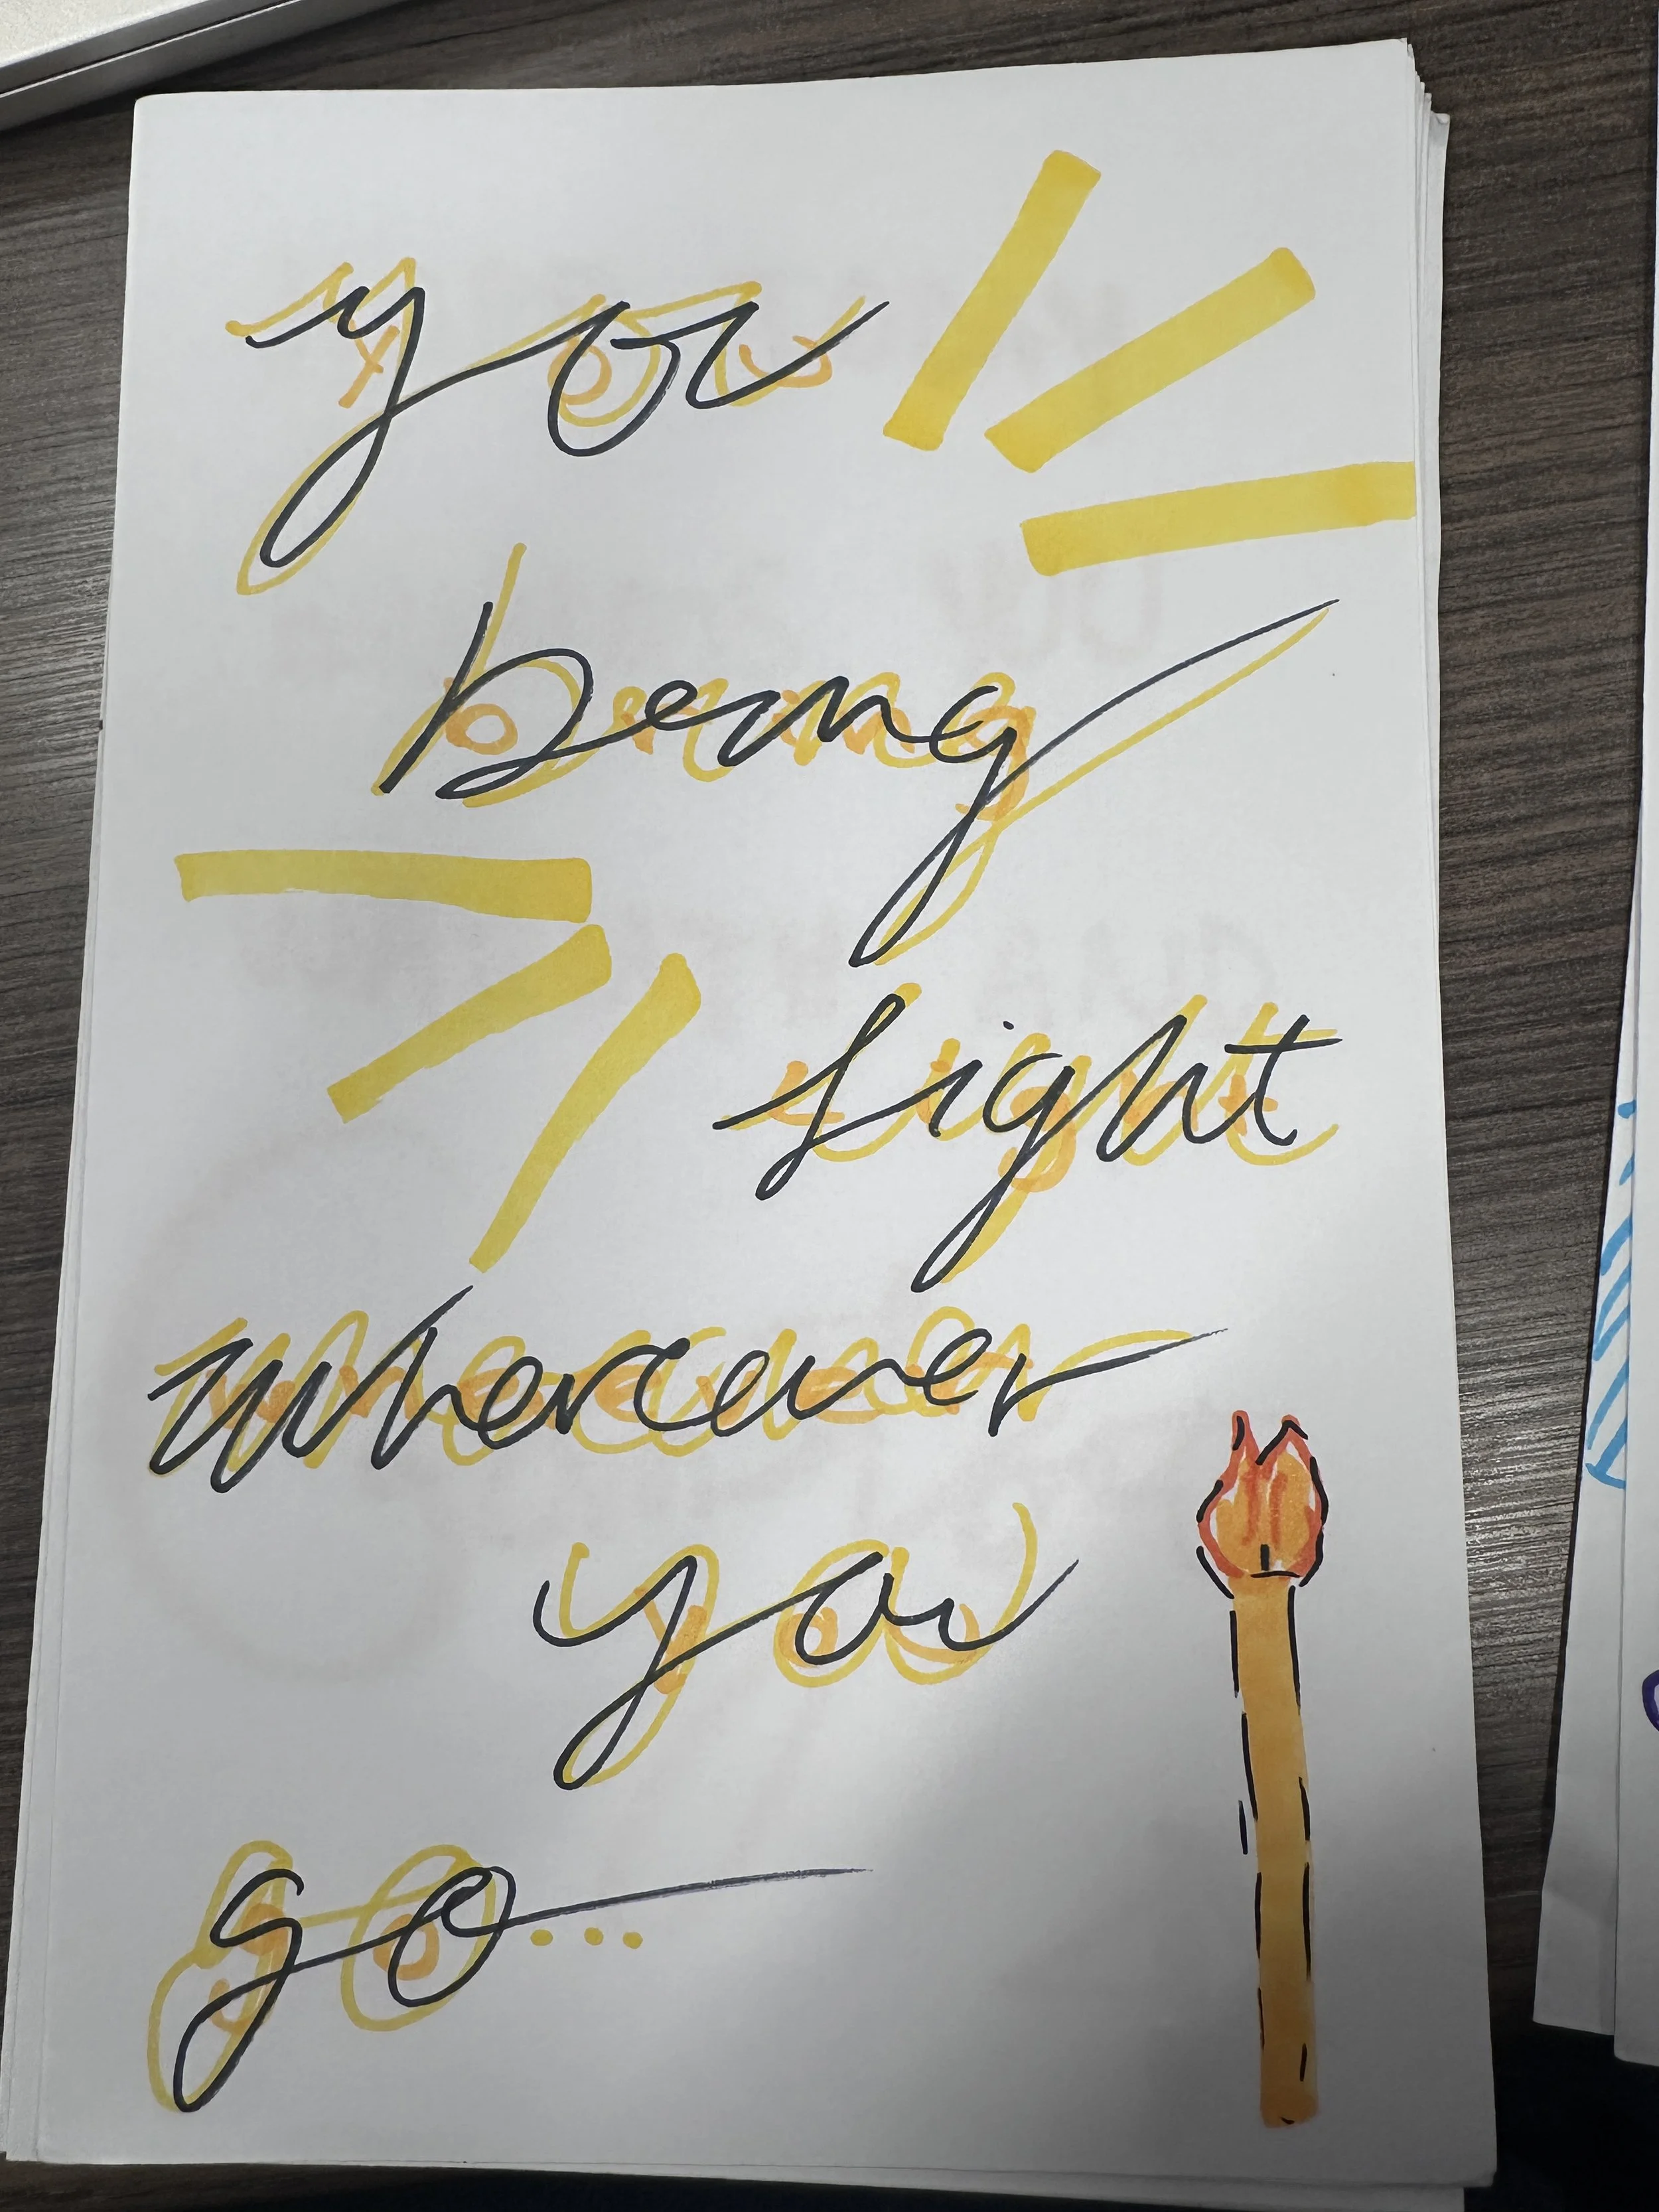 you
bring
light
wherever
you
go...